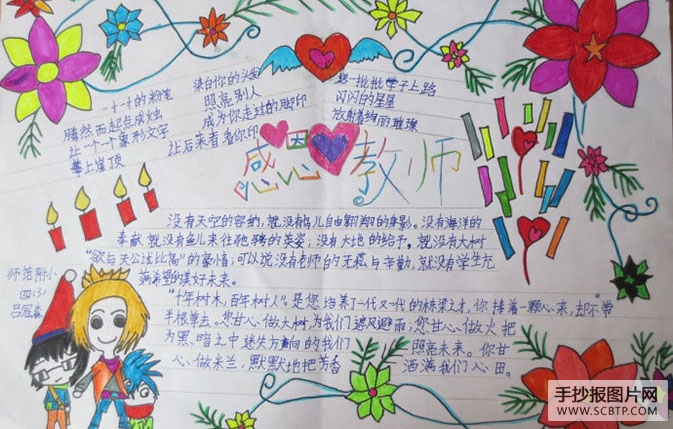 一寸寸的粉笔
腾然而起铸成烛
让一个个象形文字
攀上崖顶
染白你的头发
照亮别人
成为你走过的脚印
让后来者看你印
整一批批学子上路
闪闪的星星
放射着绚丽璀璨
感恩教师
没有天空的容纳,就没有鸟儿自由翱翔的身影。没有海洋的
奉献 就没有鱼儿来往驰骋的英姿;没有大地的给予。就没有大树
“欲与天公试比高”的豪情;可以说没有老师的无私与辛勤,就没有学生充
满希望的美好未来。
“十年树木,百年树人”是您培养了一代又一代的栋梁之才,你捧着一颗心来,却不带
半根草去。您甘心做大树为我们遮风避雨;您甘心做火把
为黑暗之中迷失方向的我们 照亮未来。你甘
心做米兰,默默地把芳香 洒满我们心田。
师范附小
四(3)
手抄报图片网
WWW.SCBTP.COM